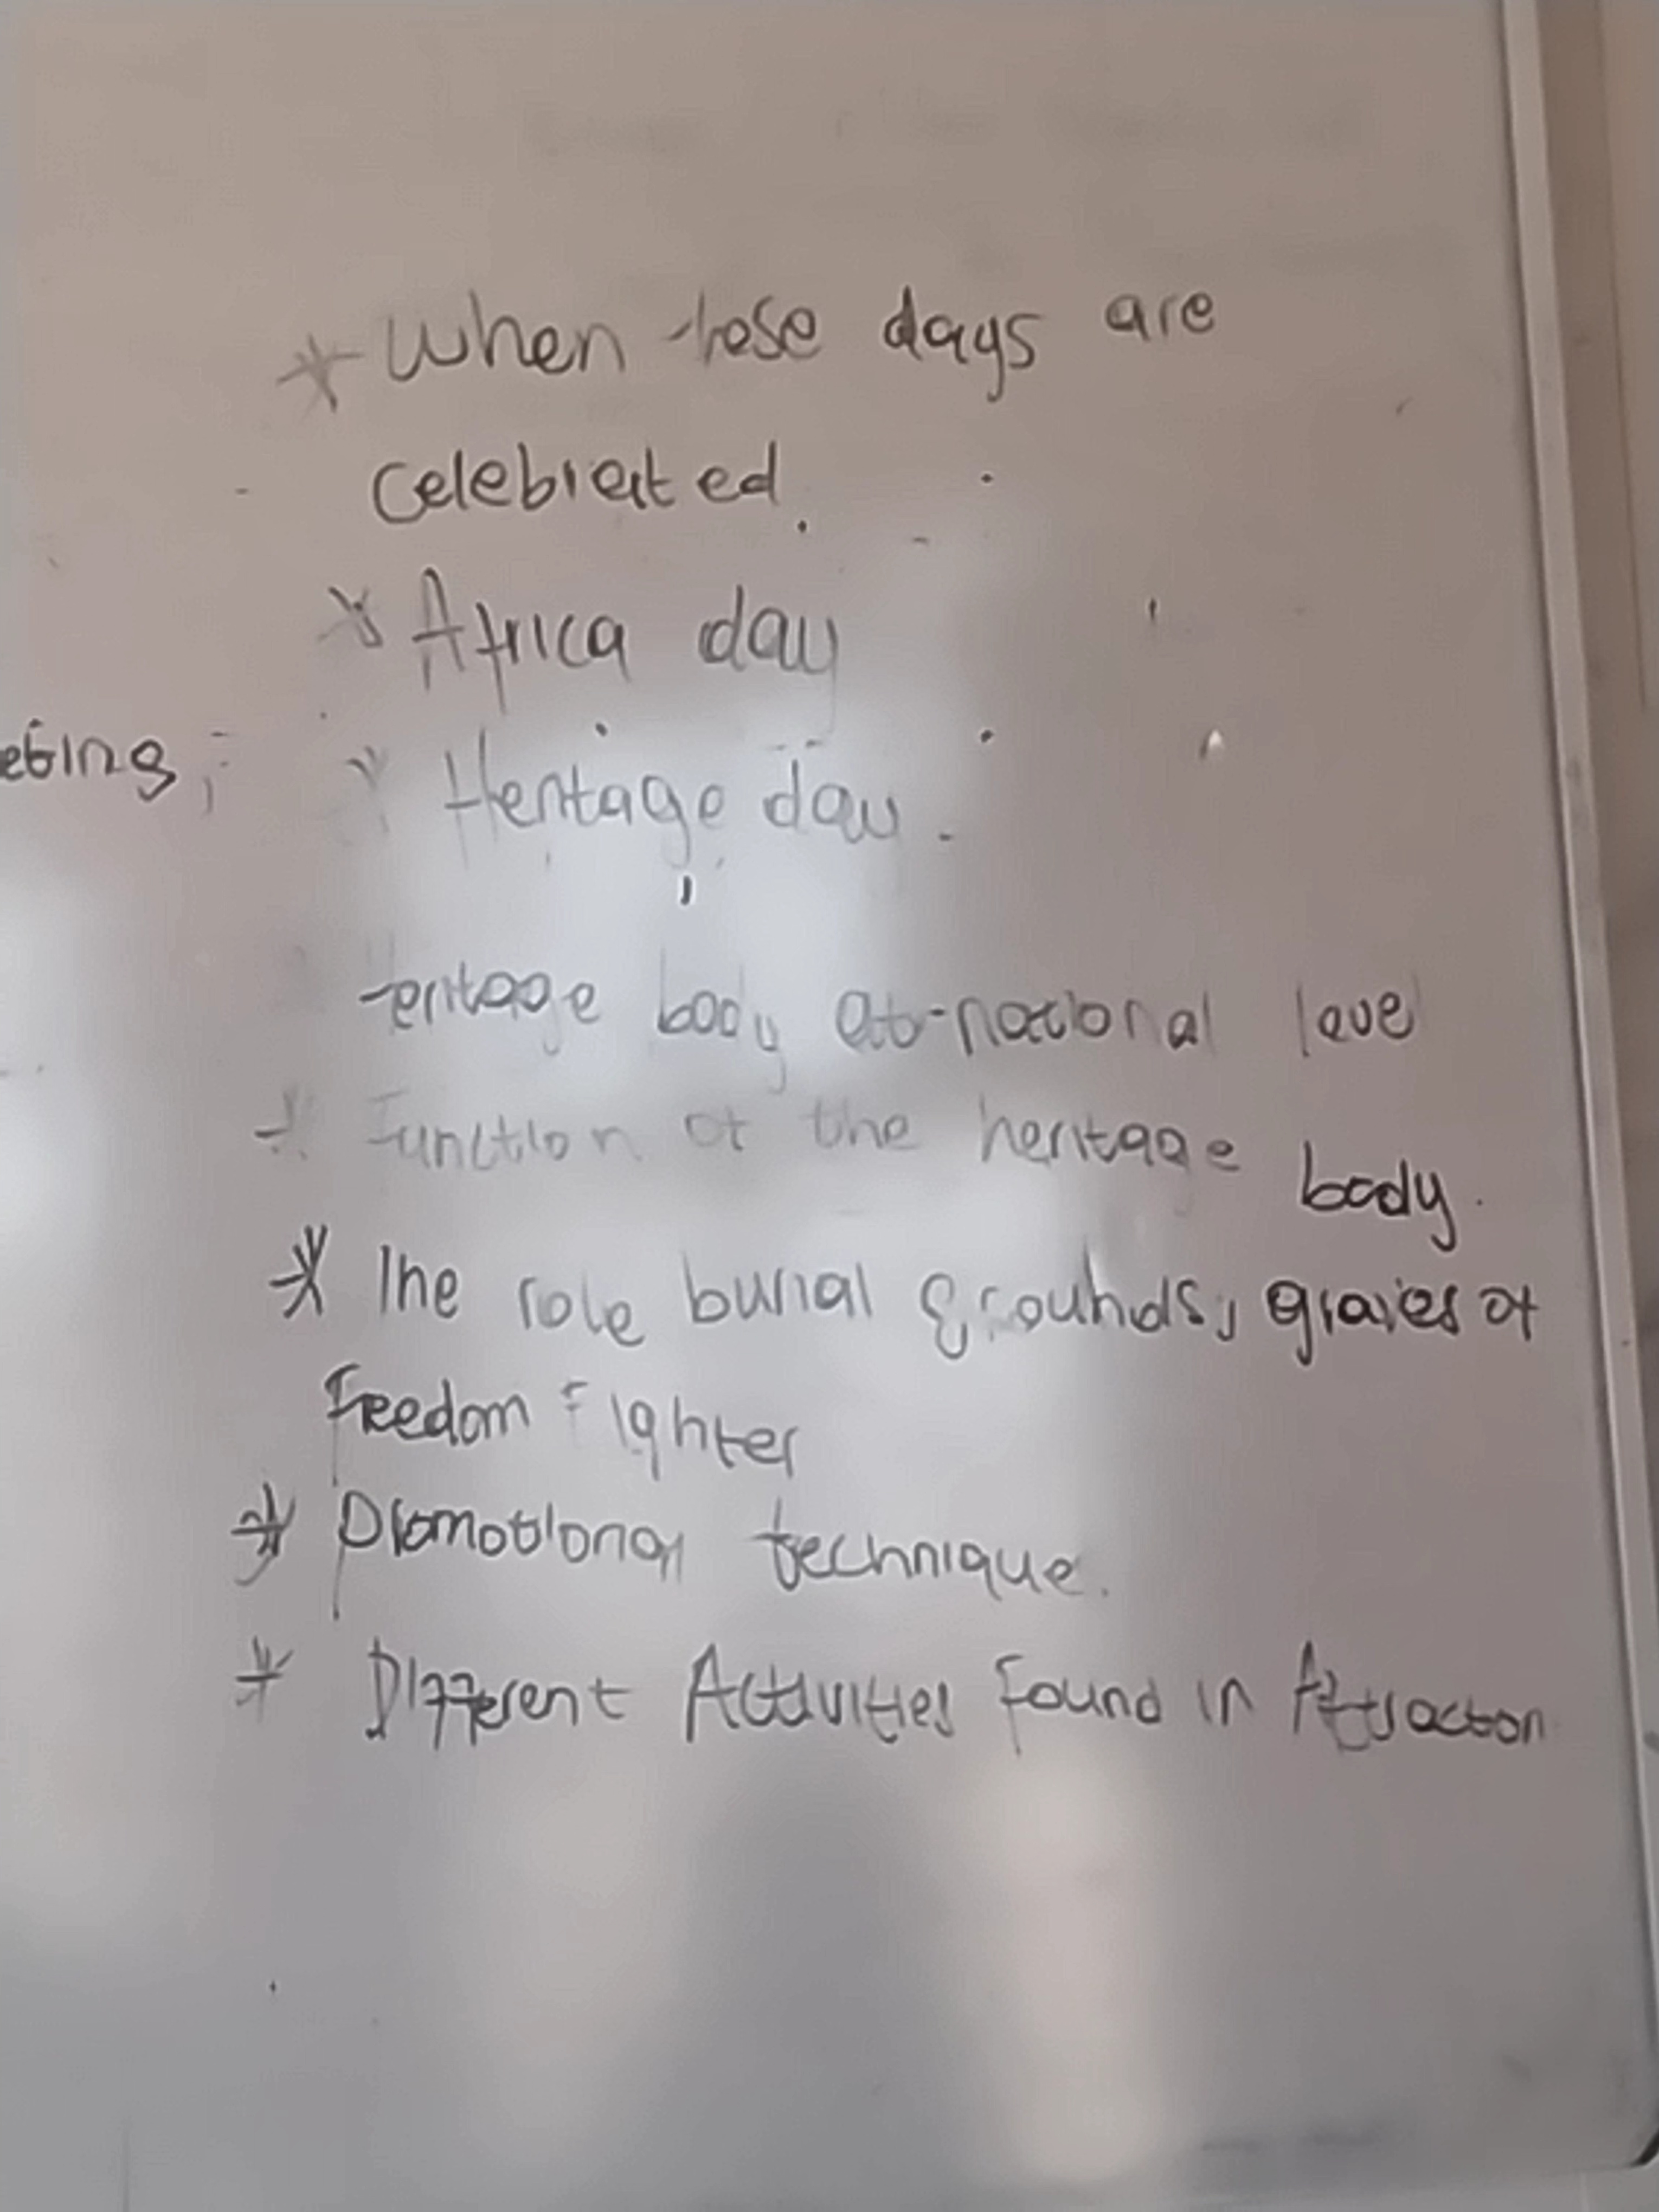 * When those days are
celebrated.
* Africa day
eting; * Heritage day.
Heritage body at national level
* Function of the heritage body.
* The role burial grounds, graves of
Freedom Fighter
* Promotional technique.
* Different Activities Found in Attraction